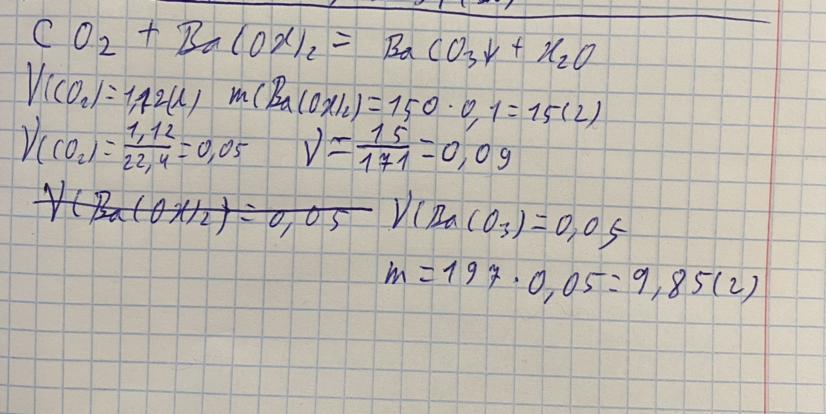 CO₂ + Ba(OH)₂ = BaCO₃↓ + H₂O
V(CO₂)=1,12(л) m(Ba(OH)₂)=150·0,1=15(г)
ν(CO₂)=1,12/22,4=0,05 ν=15/171=0,09
ν(Ba(OH)₂)=0,05 ν(BaCO₃)=0,05
m=197·0,05=9,85(г)